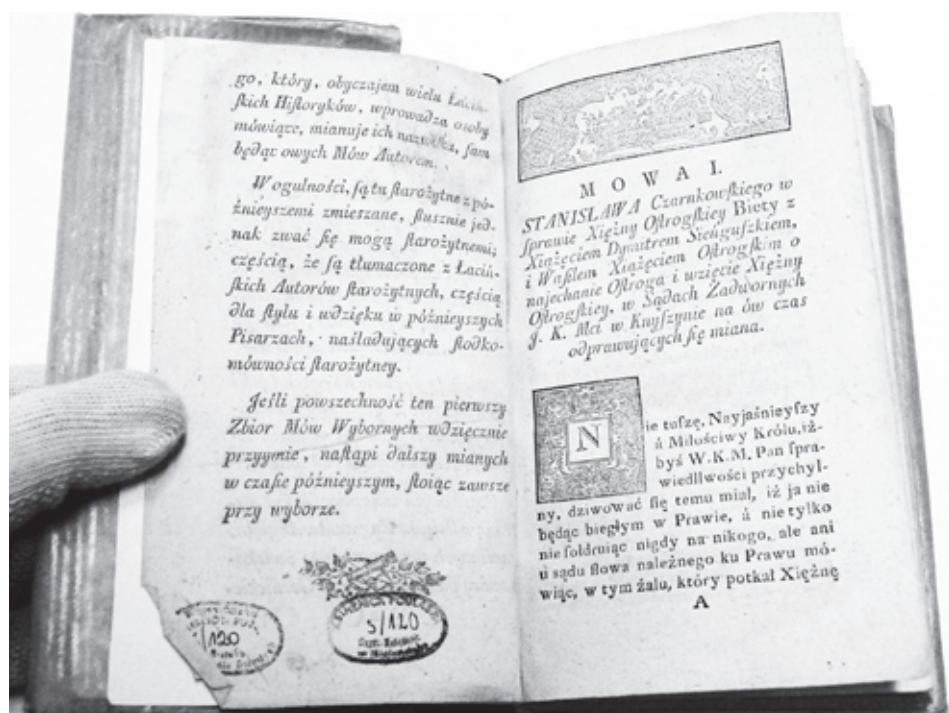 go, który, obyczajem wielu Łaciń-
ſkich Hiſtoryków, wprowadza osoby
mówiące, mianuje ich nazwiſka, ſam
będąc owych Mów Autorem.
W ogulności, ſą tu ſtarożytne z pó-
źnieyszemi zmieszane, ſłusznie jed-
nak zwać ſię mogą ſtarożytnemi;
częścią, że ſą tłumaczone z Łaciń-
ſkich Autorów ſtarożytnych, częścią
dla ſtylu i wdzięku w późnieyszych
Pisarzach, naśladujących ſłodko-
mówności ſtarożytney.
Jeśli powszechność ten pierwszy
Zbior Mów Wybornych wdzięcznie
przyymie, naſtąpi dalszy mianych
w czaſie późnieyszym, ſtoiąc zawsze
przy wyborze.
/120
5/120
M O W A I.
STANISŁAWA Czarnkowſkiego w
ſprawie Xiężny Oſtrogſkiey Biety z
Xiążęciem Dymitrem Sieńguſzkiem,
i Waſilem Xiążęciem Oſtrogſkim o
najechanie Oſtroga i wzięcie Xiężny
Oſtrogſkiey, w Sądach Zadwornych
J. K. Mci w Knyſzynie na ów czas
odprawujących ſię miana.
Nie tuſzę, Nayjaśnieyſzy
á Miłościwy Królu, iż-
byś W. K. M. Pan ſpra-
wiedliwości przychyl-
ny, dziwować ſię temu miał, iż ja nie
będąc biegłym w Prawie, á nie tylko
nie ſoldruiąc nigdy na nikogo, ale ani
u sądu ſłowa należnego ku Prawu mó-
wiąc, w tym żalu, który potkał Xiężnę
A